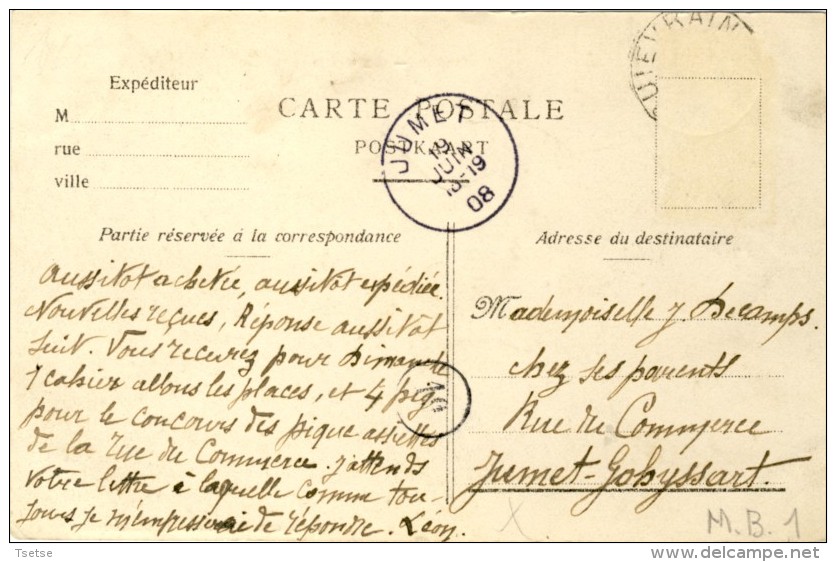 QUIEVRAIN
Expéditeur
M
rue
ville
CARTE POSTALE
POSTKAART
JUMET
19
JUIN
18-19
08
Partie réservée à la correspondance
Adresse du destinataire
Aussitot achetée, aussitot expédiée.
Nouvelles reçues, Réponse aussitôt
suit. Vous recevrez pour Dimanche
1 cahier allons les places, et 4 pig
pour le concours des pique assiettes
de la rue du Commerce. J'attends
votre lettre à laquelle comme tou-
jours je m'empresserai de répondre. Léon.
Mademoiselle J. Decamps.
chez ses parents
Rue du Commerce
Jumet-Gohyssart.
M.B.1
Tsetse
www.delcampe.net